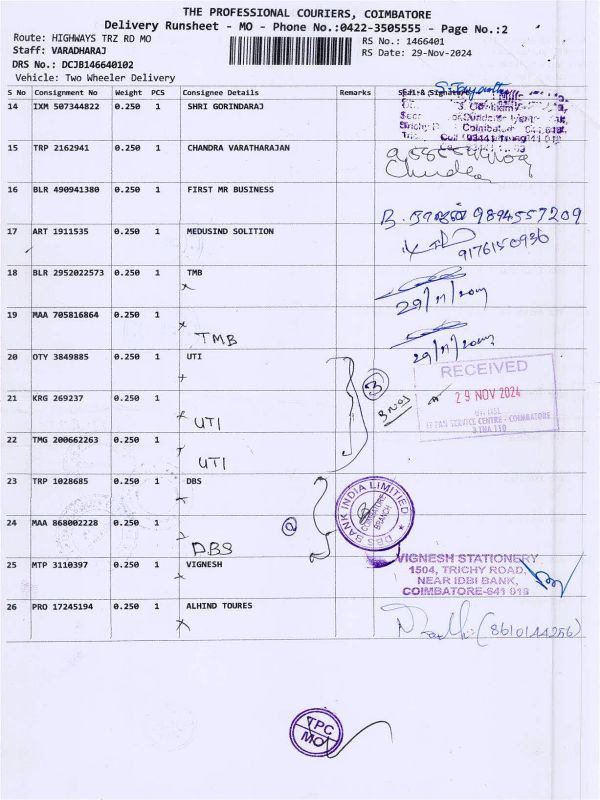 THE PROFESSIONAL COURIERS, COIMBATORE
Delivery Runsheet - MO - Phone No.:0422-3505555 - Page No.:2
Route: HIGHWAYS TRZ RD MO
RS No.: 1466401
Staff: VARADHARAJ
RS Date: 29-Nov-2024
DRS No.: DCJB146640102
Vehicle: Two Wheeler Delivery
S No Consignment No Weight PCS Consignee Details Remarks Seal & Signature
14 IXM 507344822 0.250 1 SHRI GORINDARAJ
15 TRP 2162941 0.250 1 CHANDRA VARATHARAJAN
16 BLR 490941380 0.250 1 FIRST MR BUSINESS
B. 9894557209
17 ART 1911535 0.250 1 MEDUSIND SOLITION
9176150936
18 BLR 2952022573 0.250 1 TMB
29/11/2024
19 MAA 705816864 0.250 1
TMB
29/11/2024
20 OTY 3849885 0.250 1 UTI
RECEIVED
29 NOV 2024
21 KRG 269237 0.250 1
UTI
3 NOS
3
UTI ITSL
PAN SERVICE CENTRE - COIMBATORE
22 TMG 200662263 0.250 1
UTI
23 TRP 1028685 0.250 1 DBS
DBS BANK INDIA LIMITED
COIMBATORE BRANCH
24 MAA 868002228 0.250 1
DBS
2
25 MTP 3110397 0.250 1 VIGNESH
VIGNESH STATIONERY
1504, TRICHY ROAD,
NEAR IDBI BANK,
COIMBATORE-641 018
26 PRO 17245194 0.250 1 ALHIND TOURES
(8610144256)
TPC
MO